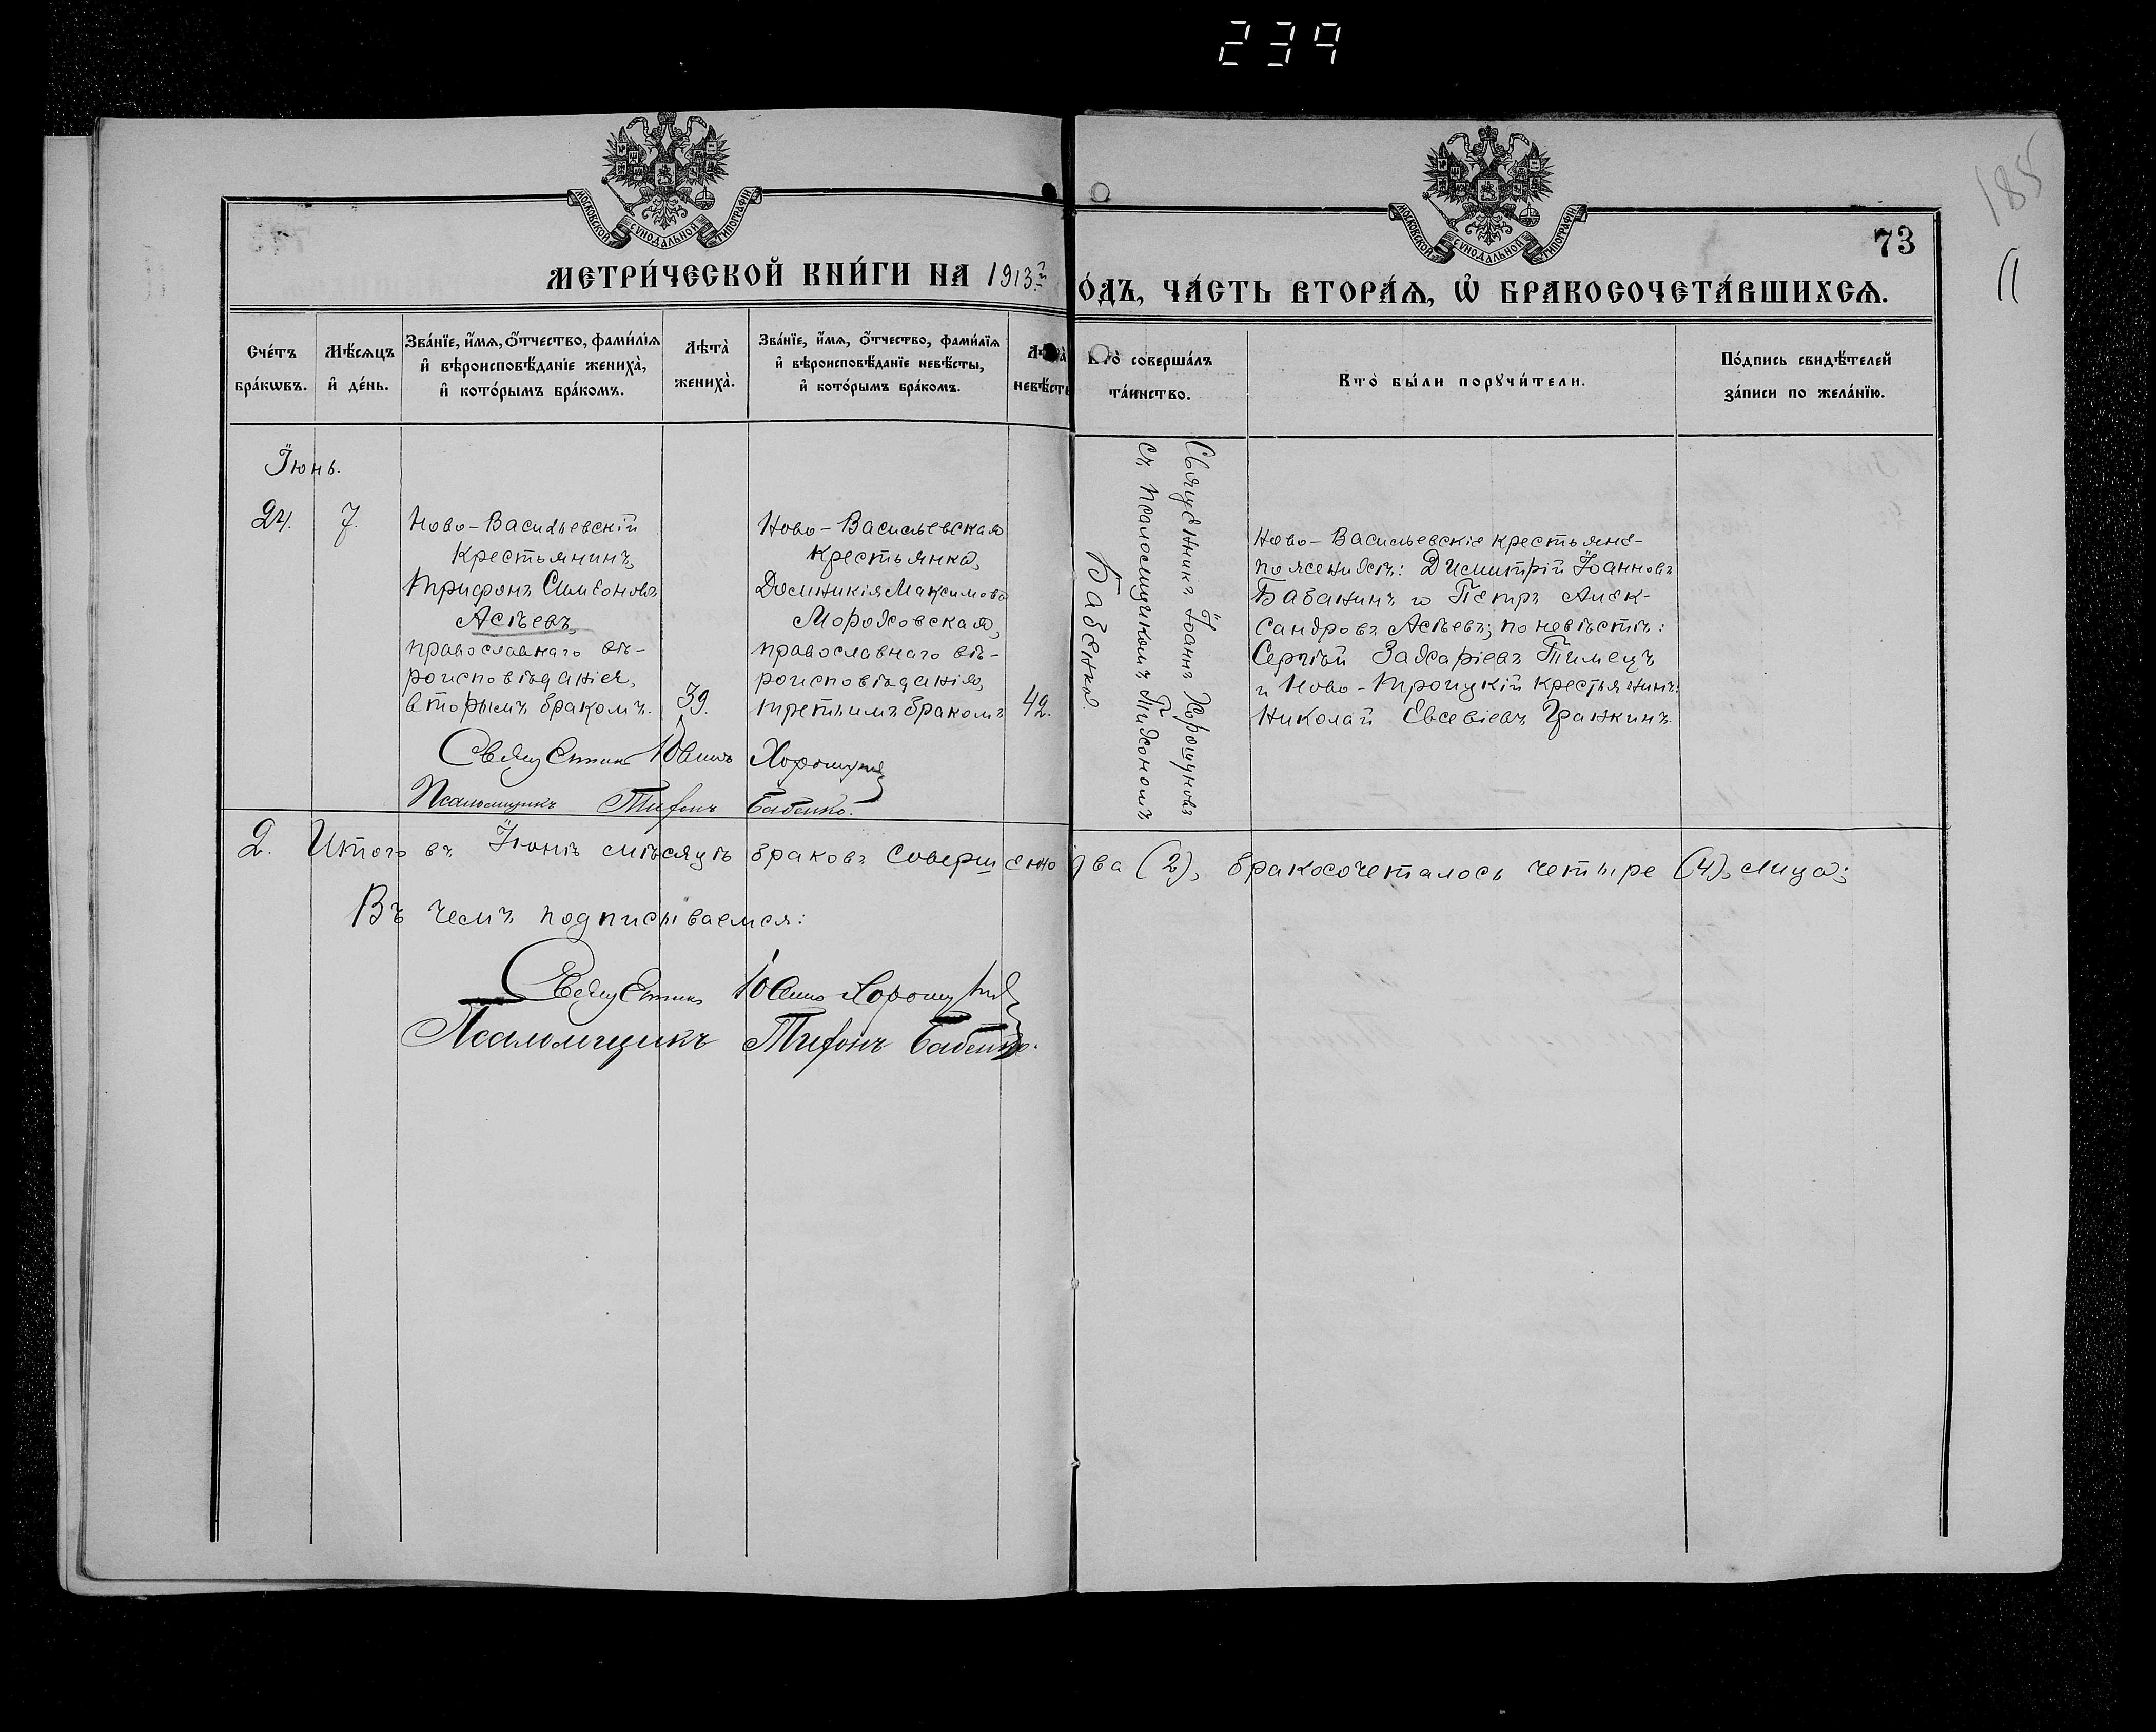 234
185
11
МОСКОВСКОЙ СѴНОДАЛЬНОЙ ТИПОГРАФІИ
МОСКОВСКОЙ СѴНОДАЛЬНОЙ ТИПОГРАФІИ
73
МЕТРИ́ЧЕСКОЙ КНИ́ГИ НА 1913й
О́ДЪ, ЧА́СТЬ ВТОРА́Ѧ, Ѽ БРАКОСОЧЕТА́ВШИХСѦ.
Сче́тъ бра́кѡвъ.
Мѣ́сяцъ и҆ де́нь.
Зва́нїе, и҆́мѧ, ѻ҆́тчество, фами́лїѧ
и҆ вѣроисповѣ́данїе жениха̀,
и҆ кото́рымъ бра́комъ.
Лѣта̀ жениха̀.
Зва́нїе, и҆́мѧ, ѻ҆́тчество, фами́лїѧ
и҆ вѣроисповѣ́данїе невѣ́сты,
и҆ кото́рымъ бра́комъ.
Лѣта̀ невѣ́сты
Кто̀ соверша́лъ та́инство.
Кто̀ бы́ли порꙋчи́тели.
По́дпись свидѣ́телей за́писи по жела́нїю.
Іюнь.
24. 7.
Ново-Васильевскій
крестьянинъ
Трифонъ Симеоновъ
Асѣевъ,
православнаго вѣ-
роисповѣданія,
вторымъ бракомъ.
39.
Ново-Васильевская
крестьянка,
Домникія Максимова
Мороховская,
православнаго вѣ-
роисповѣданія,
третьимъ бракомъ
42.
Священникъ Іоаннъ Хорошуновъ
съ псаломщикомъ Тихономъ
Бабенко.
Ново-Васильевскіе крестьяне-
по женихѣ: Димитрій Іоанновъ
Бабанинъ и Петръ Алек-
сандровъ Асѣевъ; по невѣстѣ:
Сергѣй Захаріевъ Тимецъ
и Ново-Троицкій крестьянинъ:
Николай Евсевіевъ Гранкинъ.
Священникъ Іоаннъ Хорошуновъ
Псаломщикъ Тихонъ Бабенко.
2. Итого въ Іюнѣ мѣсяцѣ браковъ совершено два (2), бракосочеталось четыре (4) лица;
Въ чемъ подписываемся:
Священникъ Іоаннъ Хорошуновъ
Псаломщикъ Тихонъ Бабенко.